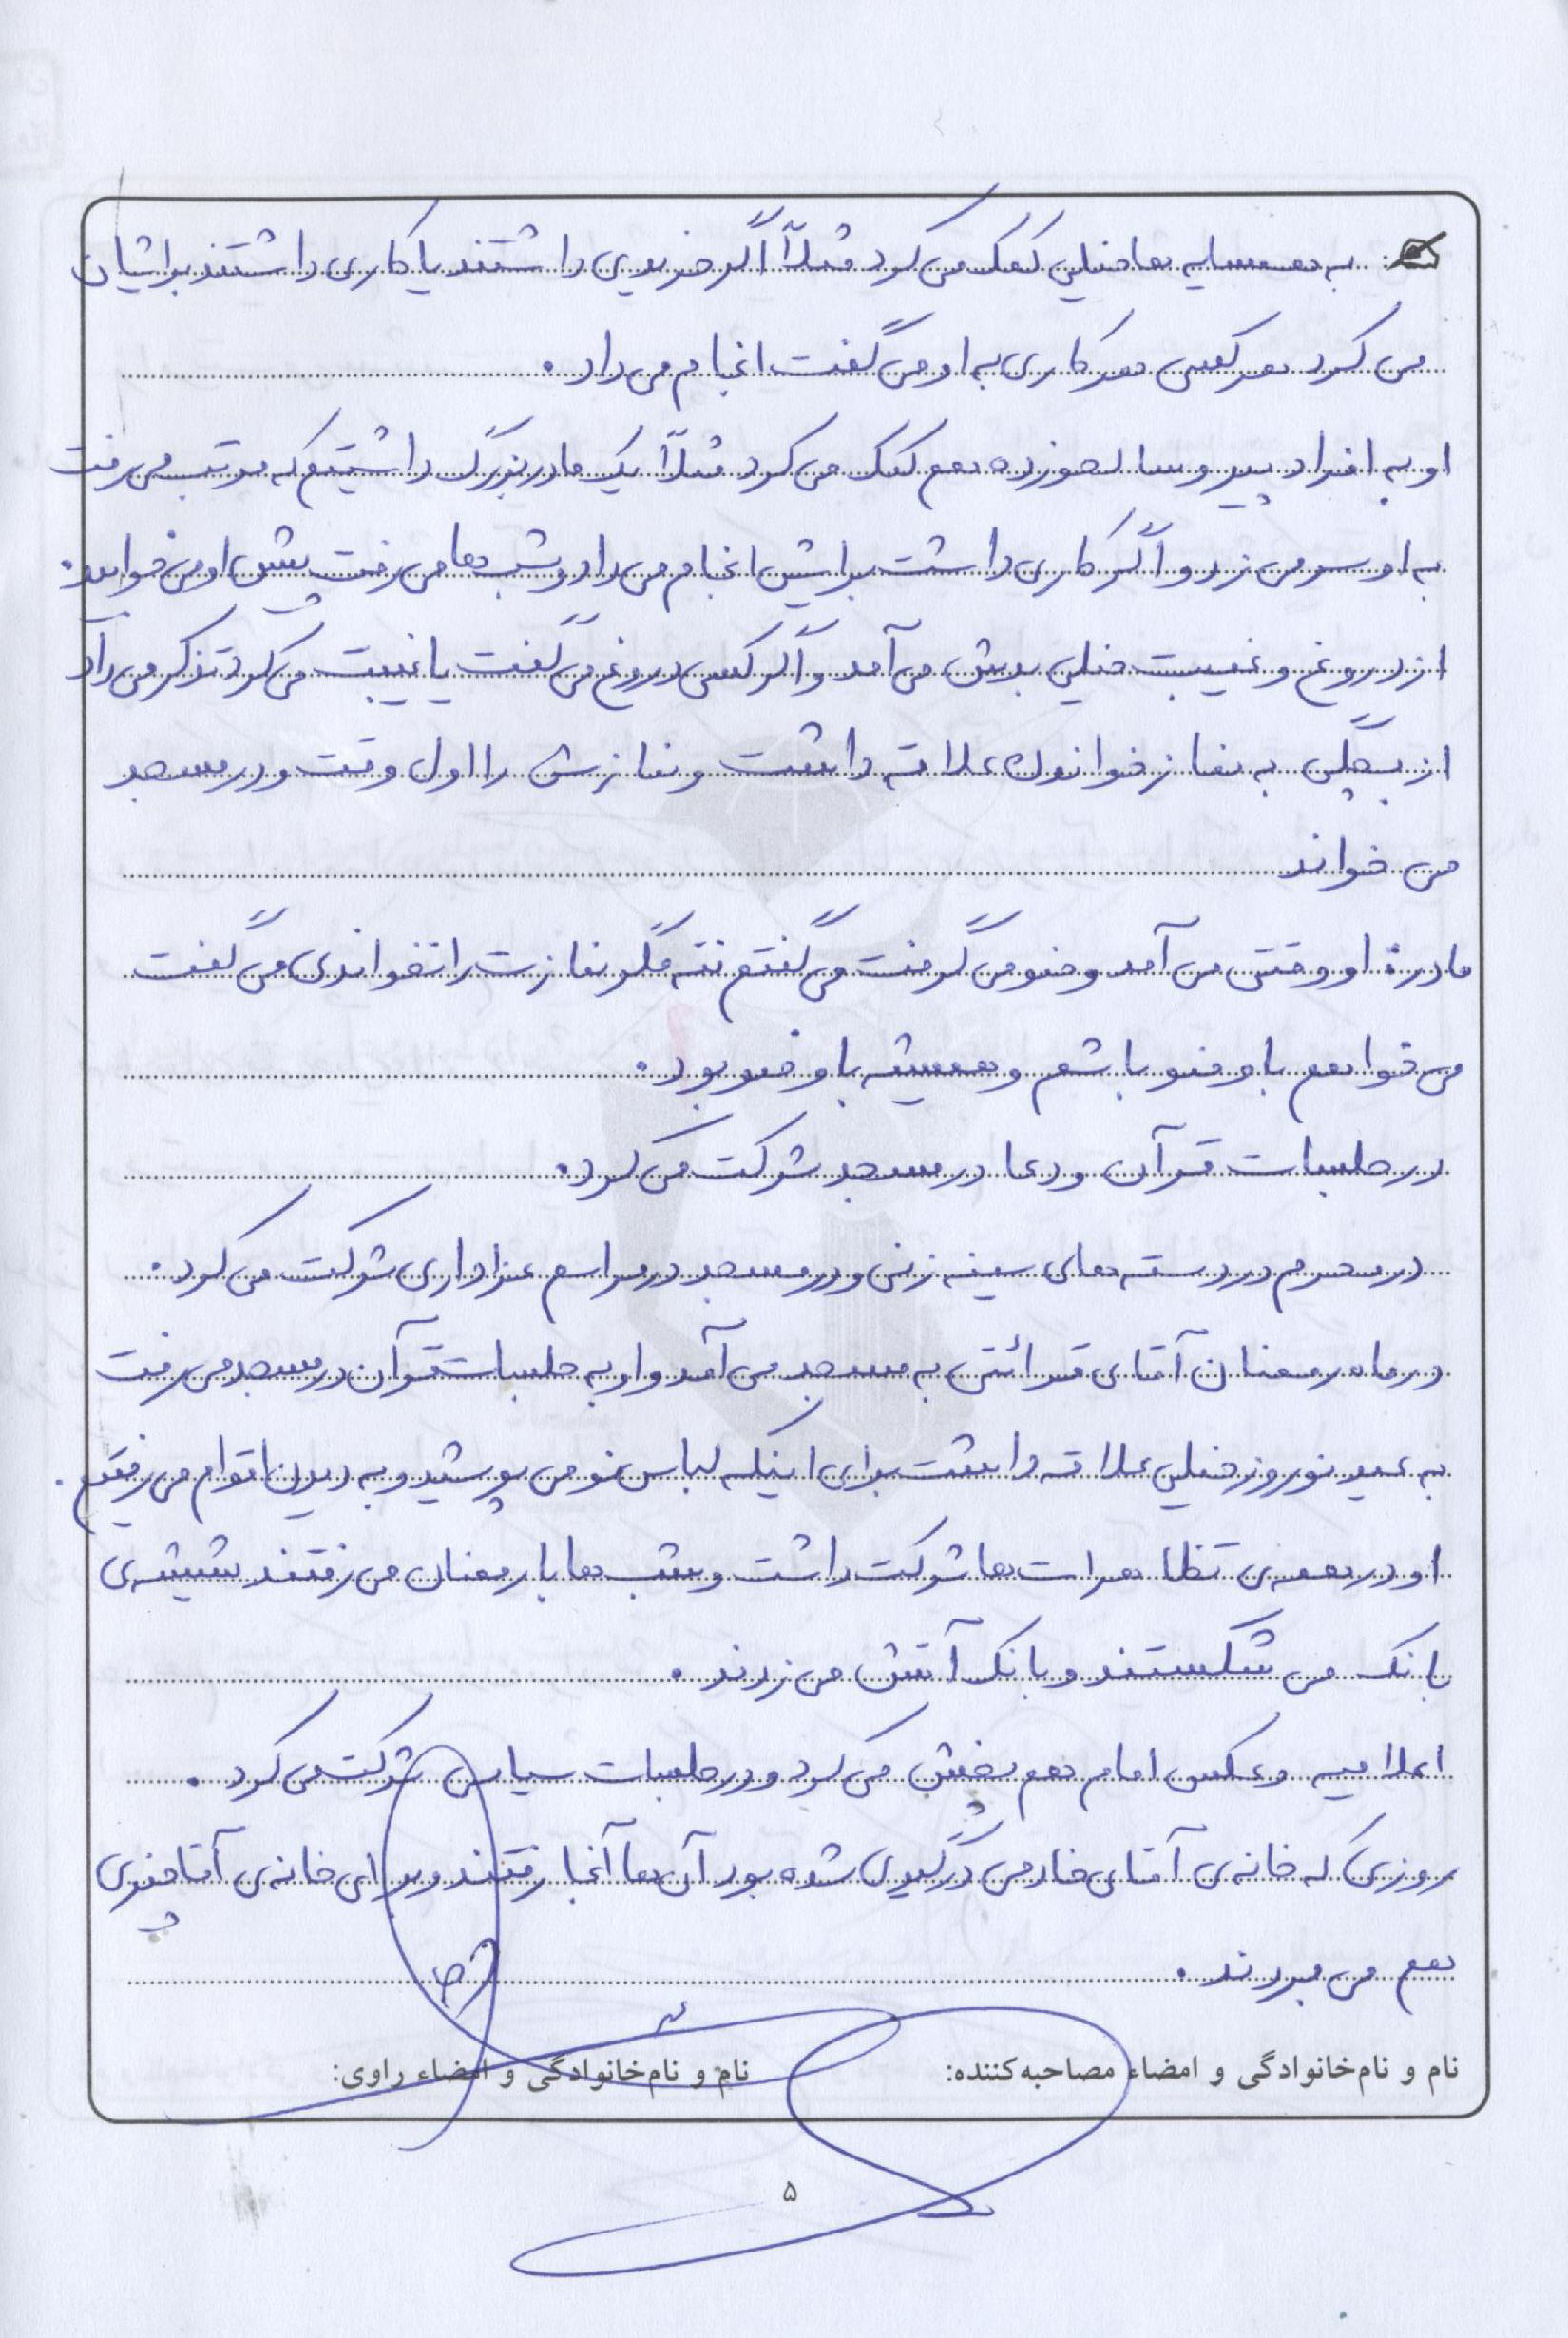 به همسایه ها خیلی کمک می کرد مثلاً اگر خریدی داشتند یا کاری داشتند برایشان
می کرد هر کسی هر کاری به او می گفت انجام می داد .
او به افراد پیر و سالخورده هم کمک می کرد مثلاً یک مادربزرگ داشتیم که مرتب می رفت
به او سر می زد و اگر کاری داشت برایش انجام می داد و شب ها می رفت پیش او می خوابید .
از دروغ و غیبت خیلی بدش می آمد و اگر کسی دروغ می گفت یا غیبت می کرد تذکر می داد
از بچگی به نماز خواندن علاقه داشت و نمازش را اول وقت و در مسجد
می خواند
مادر : او وقتی می آمد وضو می گرفت می گفتم ننه مگر نمازت را نخواندی می گفت
می خواهم با وضو باشم و همیشه با وضو بود .
در جلسات قرآن و دعا در مسجد شرکت می کرد .
در محرم در دسته های سینه زنی و در مسجد در مراسم عزاداری شرکت می کرد .
در ماه رمضان آقای قرائتی به مسجد می آمد و او به جلسات قرآن در مسجد می رفت
به عید نوروز خیلی علاقه داشت برای اینکه لباس نو می پوشید و به دیدن اقوام می رفتیم .
او در همه ی تظاهرات ها شرکت داشت و شب ها با رمضان می رفتند شیشه ی
بانک می شکستند و بانک آتش می زدند .
اعلامیه و عکس امام هم پخش می کرد و در جلسات سیاسی شرکت می کرد .
روزی که خانه ی آقای خادمی درگیری شده بود آن ها آنجا رفتند و برای خانه ی آقا
هم می بردند .
نام و نام خانوادگی و امضاء مصاحبه کننده: نام و نام خانوادگی و امضاء راوی:
۵